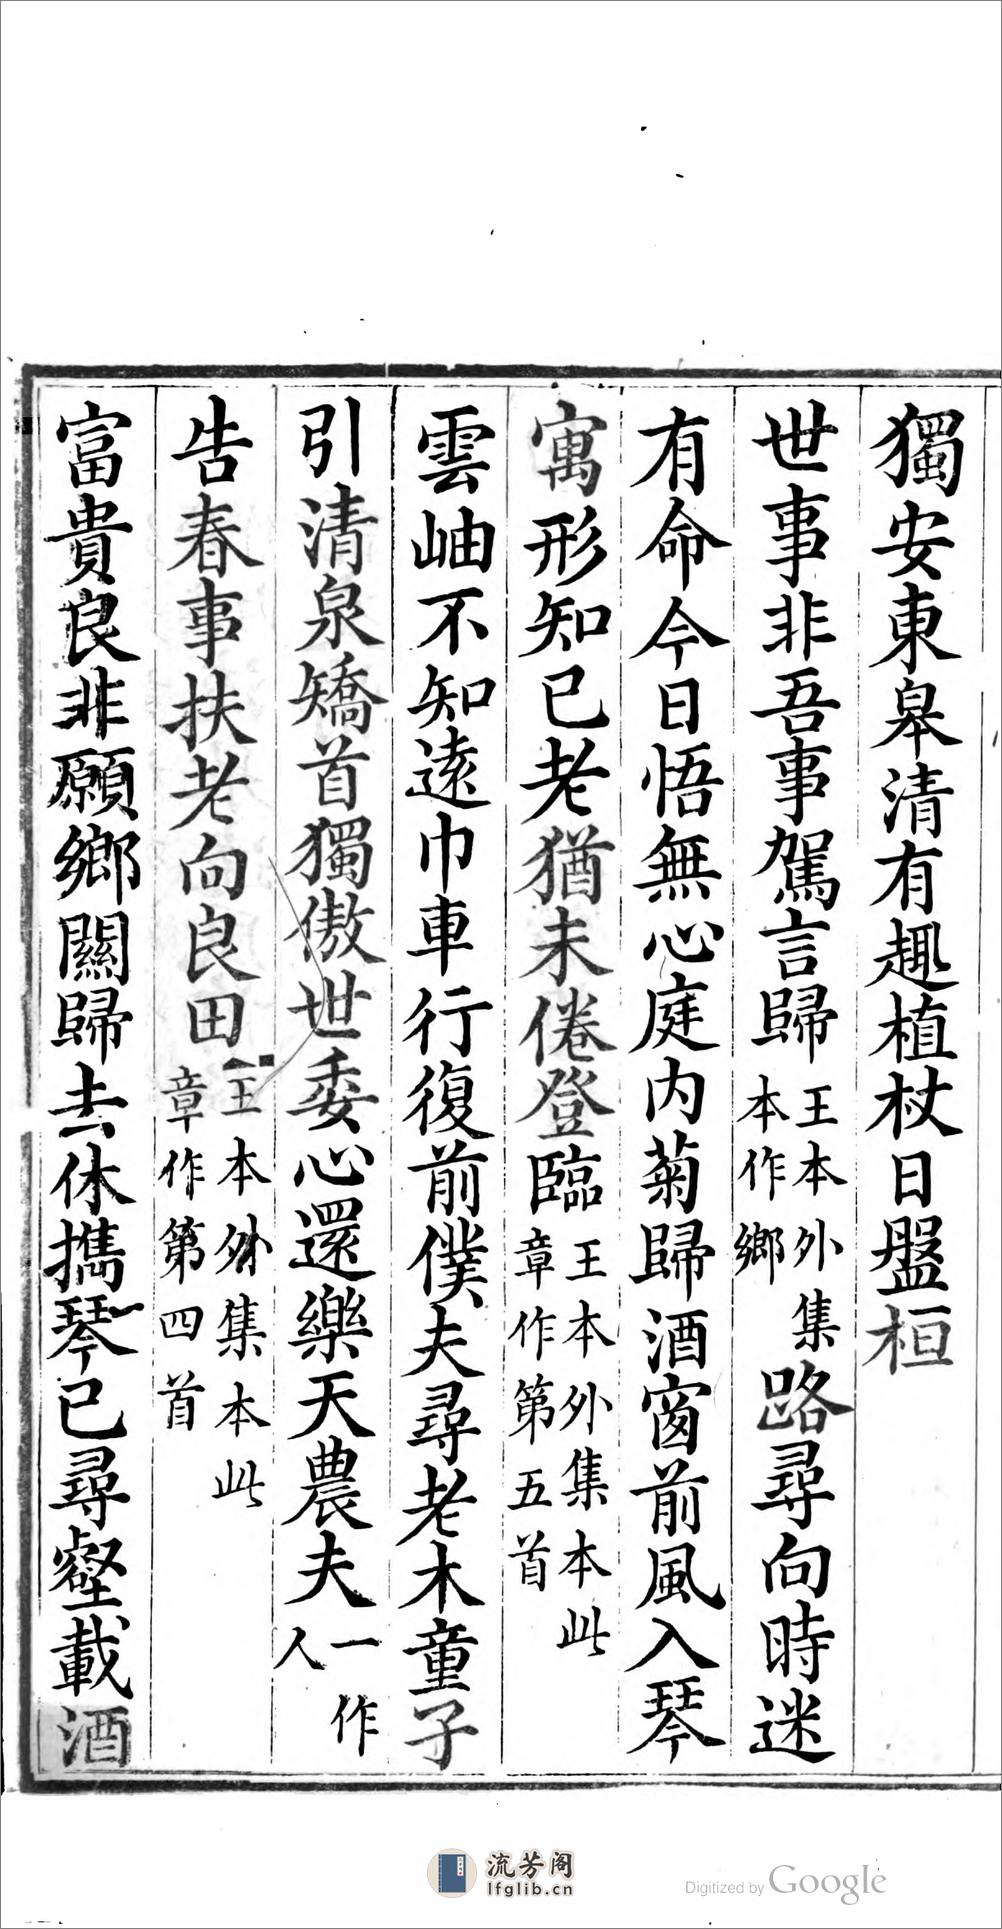 獨安東皋清有趣植杖日盤桓
世事非吾事駕言歸王本外集本作鄉路尋向時迷
有命今日悟無心庭内菊歸酒窗前風入琴
寓形知已老猶未倦登臨王本外集本此章作第五首
雲岫不知遠巾車行復前僕夫尋老木童子
引清泉矯首獨傲世委心還樂天農夫一作人
告春事扶老向良田王本外集本此章作第四首
富貴良非願鄉關歸去休攜琴已尋壑載酒
流芳阁
lfglib.cn
Digitized by Google